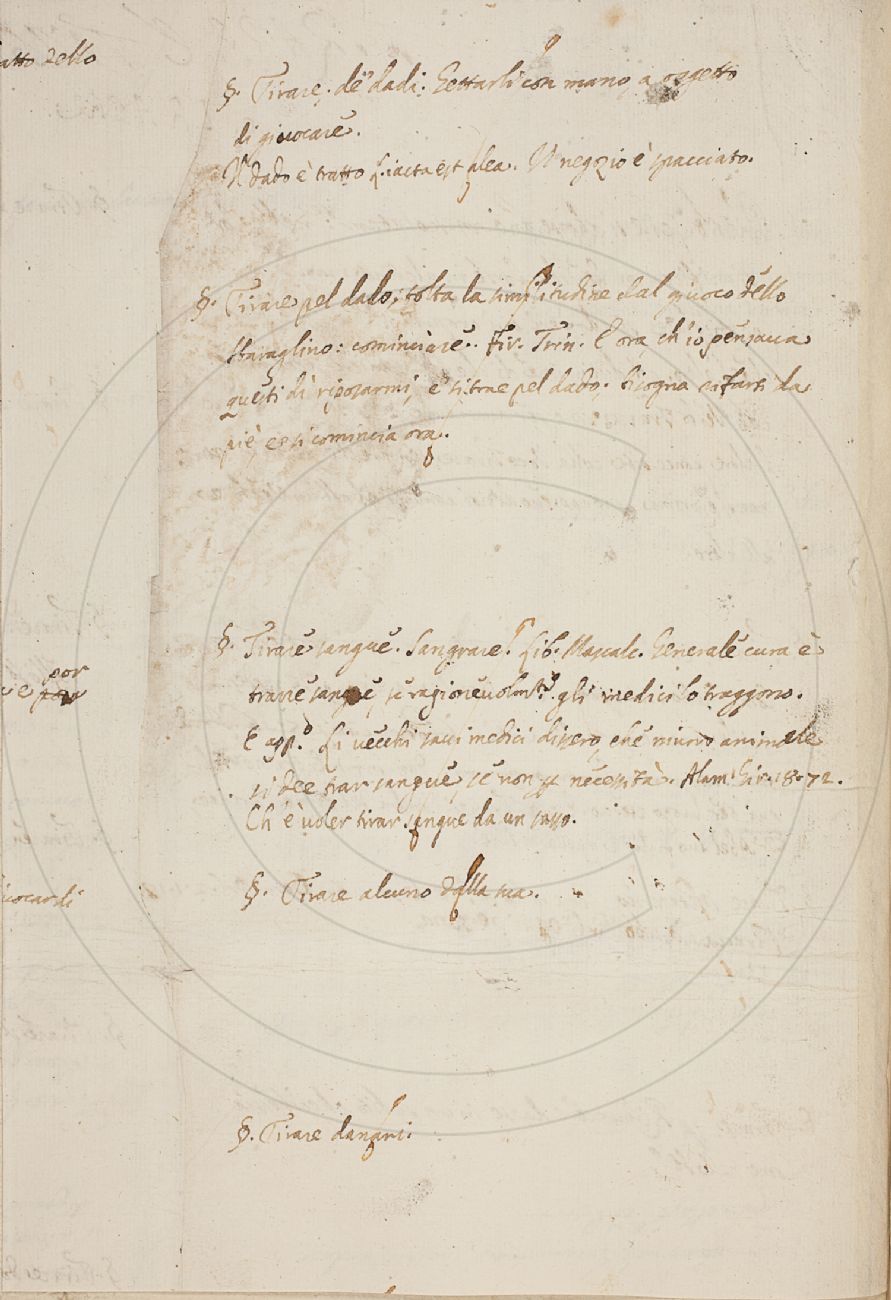 atto dello
§. Tirare, de' dadi: Gettarli con mano, a oggetto
di giuocare.
Il dado è tratto L. iacta est alea. Il negozio è spacciato.
§. Tirare pel dado, tolta la similitudine dal giuoco dello
sbaraglino: cominciare. Fir. Trin. E ora, ch'io pensava
questi dì riposarmi, e' si trae pel dado: bisogna rifarsi da
piè, e si comincia ora.
§. Tirare sangue. Sangrare. Lib. Mascalc. Generale cura è
por
trarre sangue, se ragionevolmte. gli medici lo traggono.
E app.o Li vecchi savi medici dissero, che niuno animale
si dee trar sangue, se non p necessità. Alam. Gir. 18. 72.
Ch'è voler tirar sangue da un sasso.
§. Tirare alcuno dalla sua.
iuocardi
§. Tirare danari.